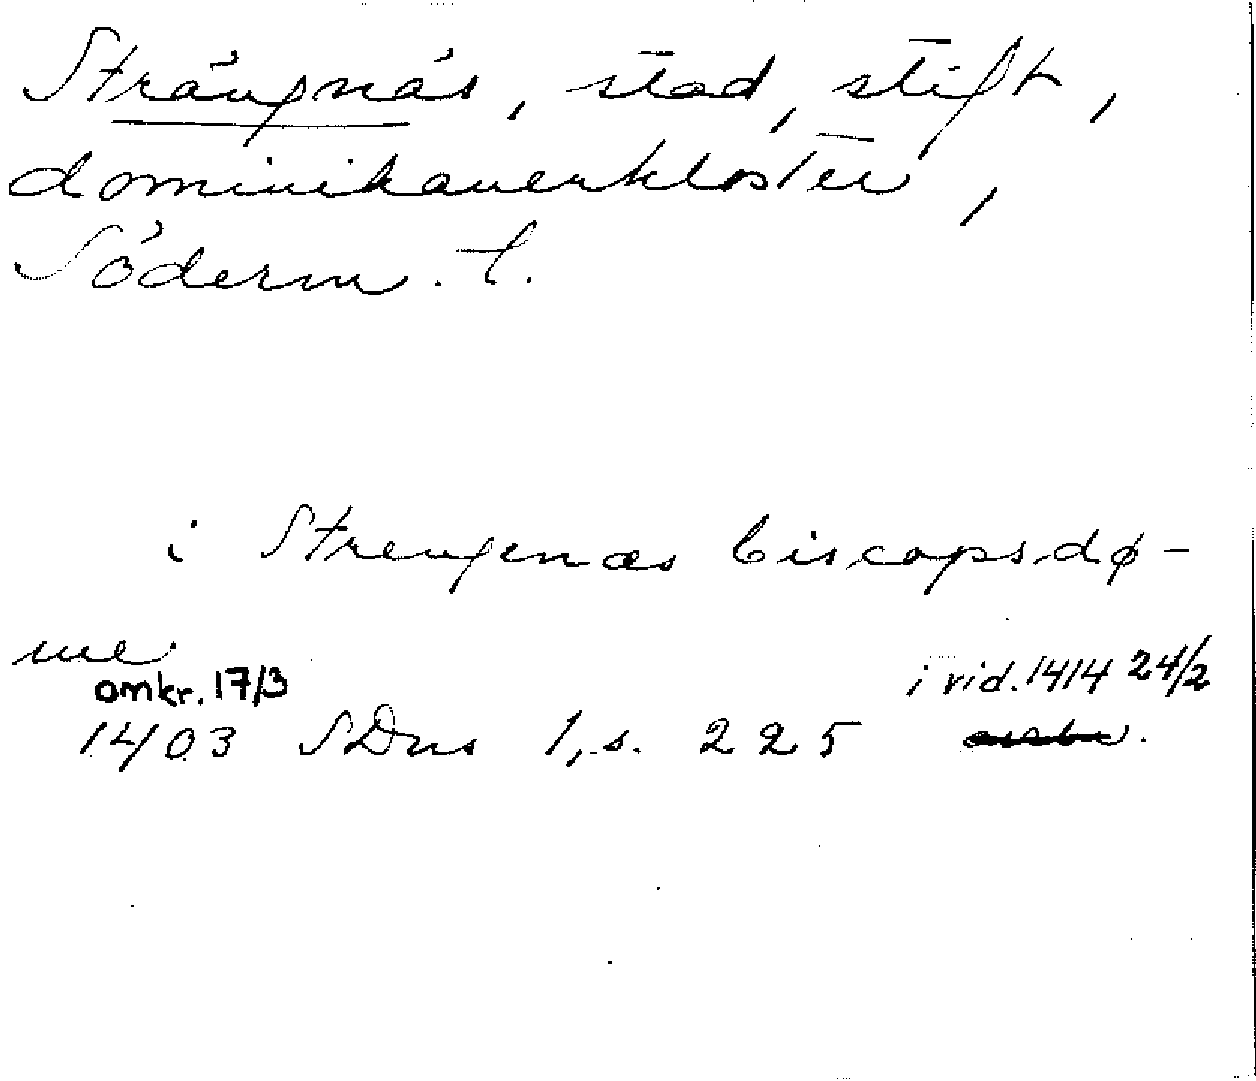 Strängnäs, stad, stift,
dominikanerkloster,
Söderm. l.
i Strengenæs biscopsdø-
me
omkr. 17/3 i vid. 1414 24/2
1403 SDns 1, s. 225